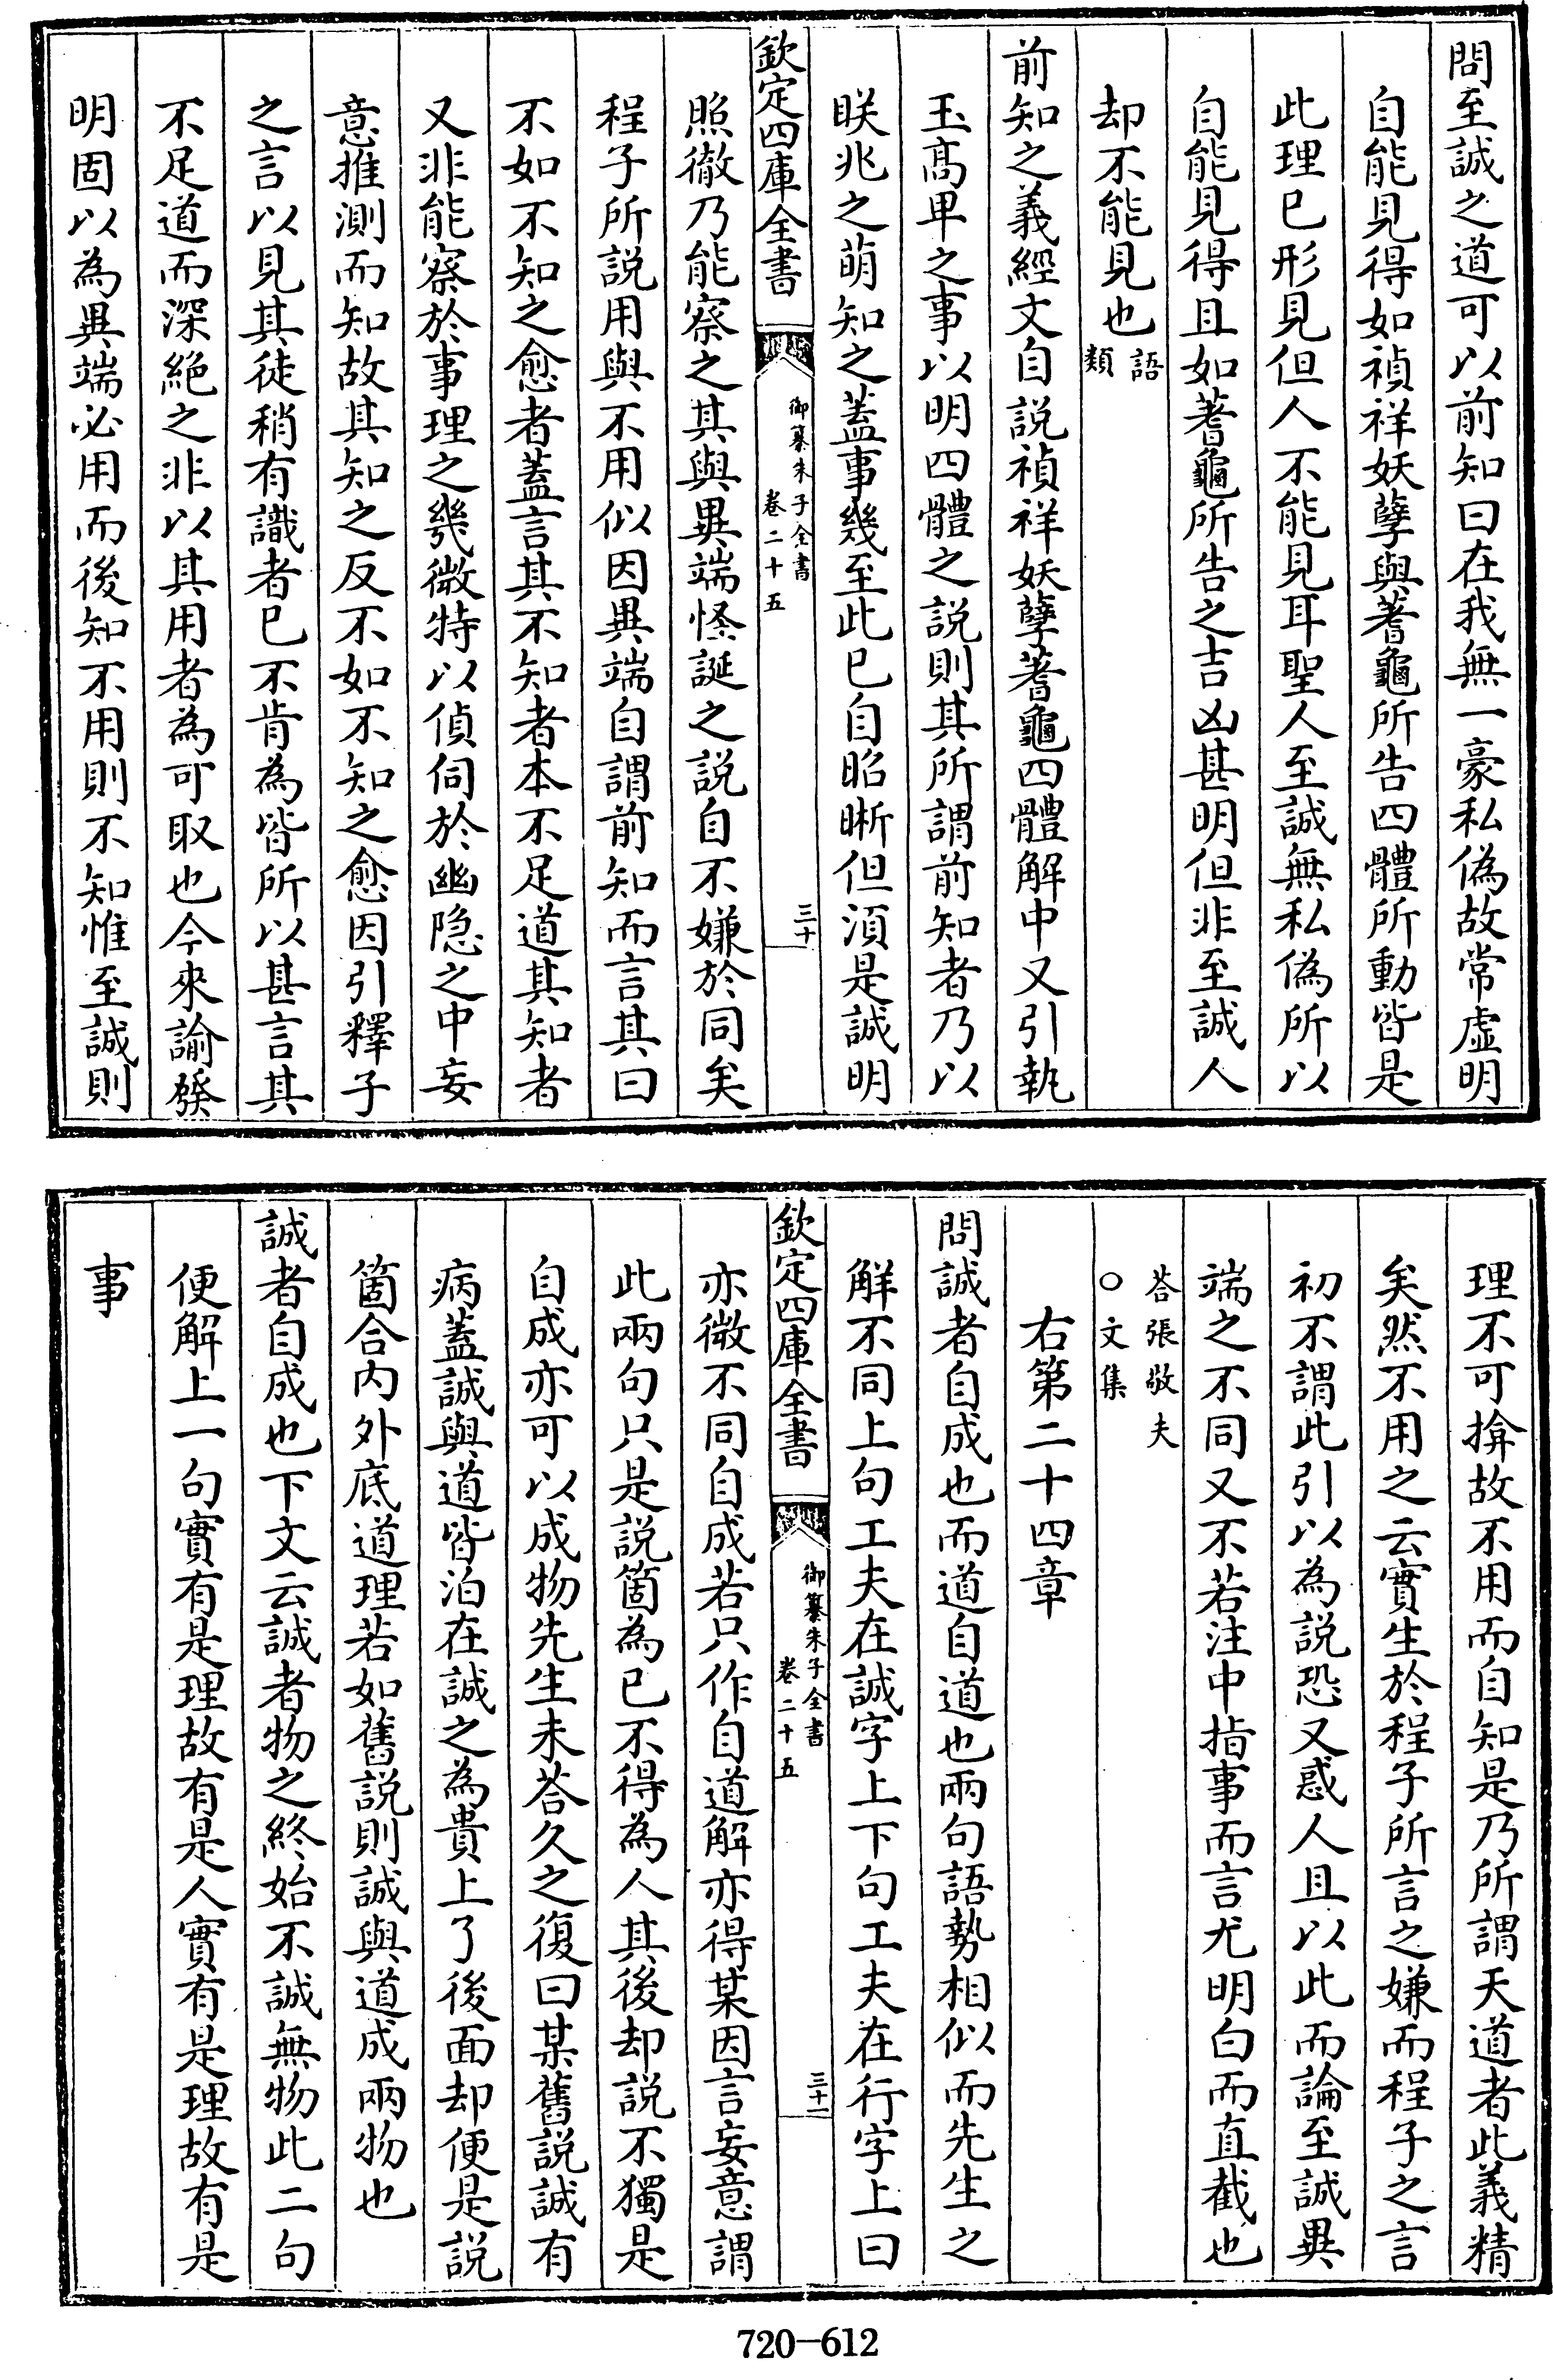 問至誠之道可以前知曰在我無一豪私偽故常虛明
自能見得如禎祥妖孽與蓍龜所告四體所動皆是
此理已形見但人不能見耳聖人至誠無私偽所以
自能見得且如蓍龜所告之吉凶甚明但非至誠人
却不能見也語類
前知之義經文自說禎祥妖孽蓍龜四體解中又引執
玉髙卑之事以明四體之說則其所謂前知者乃以
眹兆之萌知之葢事幾至此已自昭晰但須是誠明
欽定四庫全書
御纂朱子全書
卷二十五
三十
照徹乃能察之其與異端怪誕之說自不嫌於同矣
程子所說用與不用似因異端自謂前知而言其曰
不如不知之愈者葢言其不知者本不足道其知者
又非能察於事理之幾微特以偵伺於幽隠之中妄
意推測而知故其知之反不如不知之愈因引釋子
之言以見其徒稍有識者已不肯為皆所以甚言其
不足道而深絶之非以其用者為可取也今來諭發
明固以為異端必用而後知不用則不知惟至誠則
理不可揜故不用而自知是乃所謂天道者此義精
矣然不用之云實生於程子所言之嫌而程子之言
初不謂此引以為說恐又惑人且以此而論至誠異
端之不同又不若注中指事而言尤明白而直截也
荅張敬夫
○文集
右第二十四章
問誠者自成也而道自道也兩句語勢相似而先生之
解不同上句工夫在誠字上下句工夫在行字上曰
欽定四庫全書
御纂朱子全書
卷二十五
三十一
亦微不同自成若只作自道解亦得某因言妄意謂
此兩句只是說箇為已不得為人其後却說不獨是
自成亦可以成物先生未荅久之復曰某舊說誠有
病葢誠與道皆泊在誠之為貴上了後面却便是說
箇合内外底道理若如舊說則誠與道成兩物也
誠者自成也下文云誠者物之終始不誠無物此二句
便解上一句實有是理故有是人實有是理故有是
事
720-612